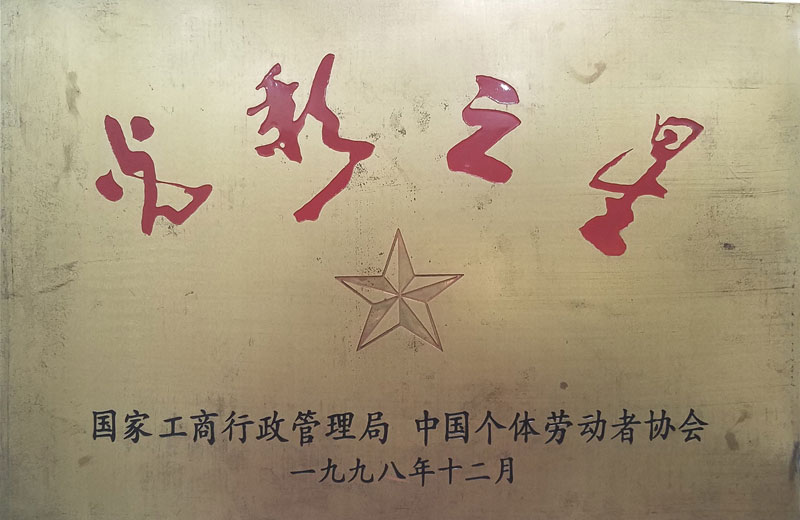 光彩之星
国家工商行政管理局 中国个体劳动者协会
一九九八年十二月